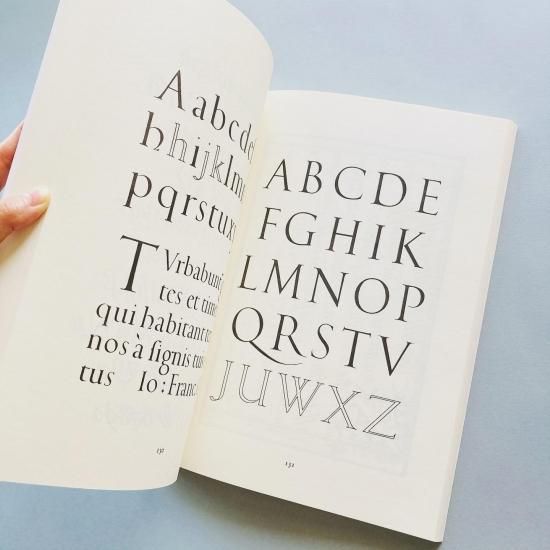 Aabcde
hhijklm
pqrstux
TVrbabunt
tes et time
qui habitant te
nos à ſignis tuis
tus lo: Franc.
ABCDE
FGHIK
LMNOP
QRSTV
JUWXZ